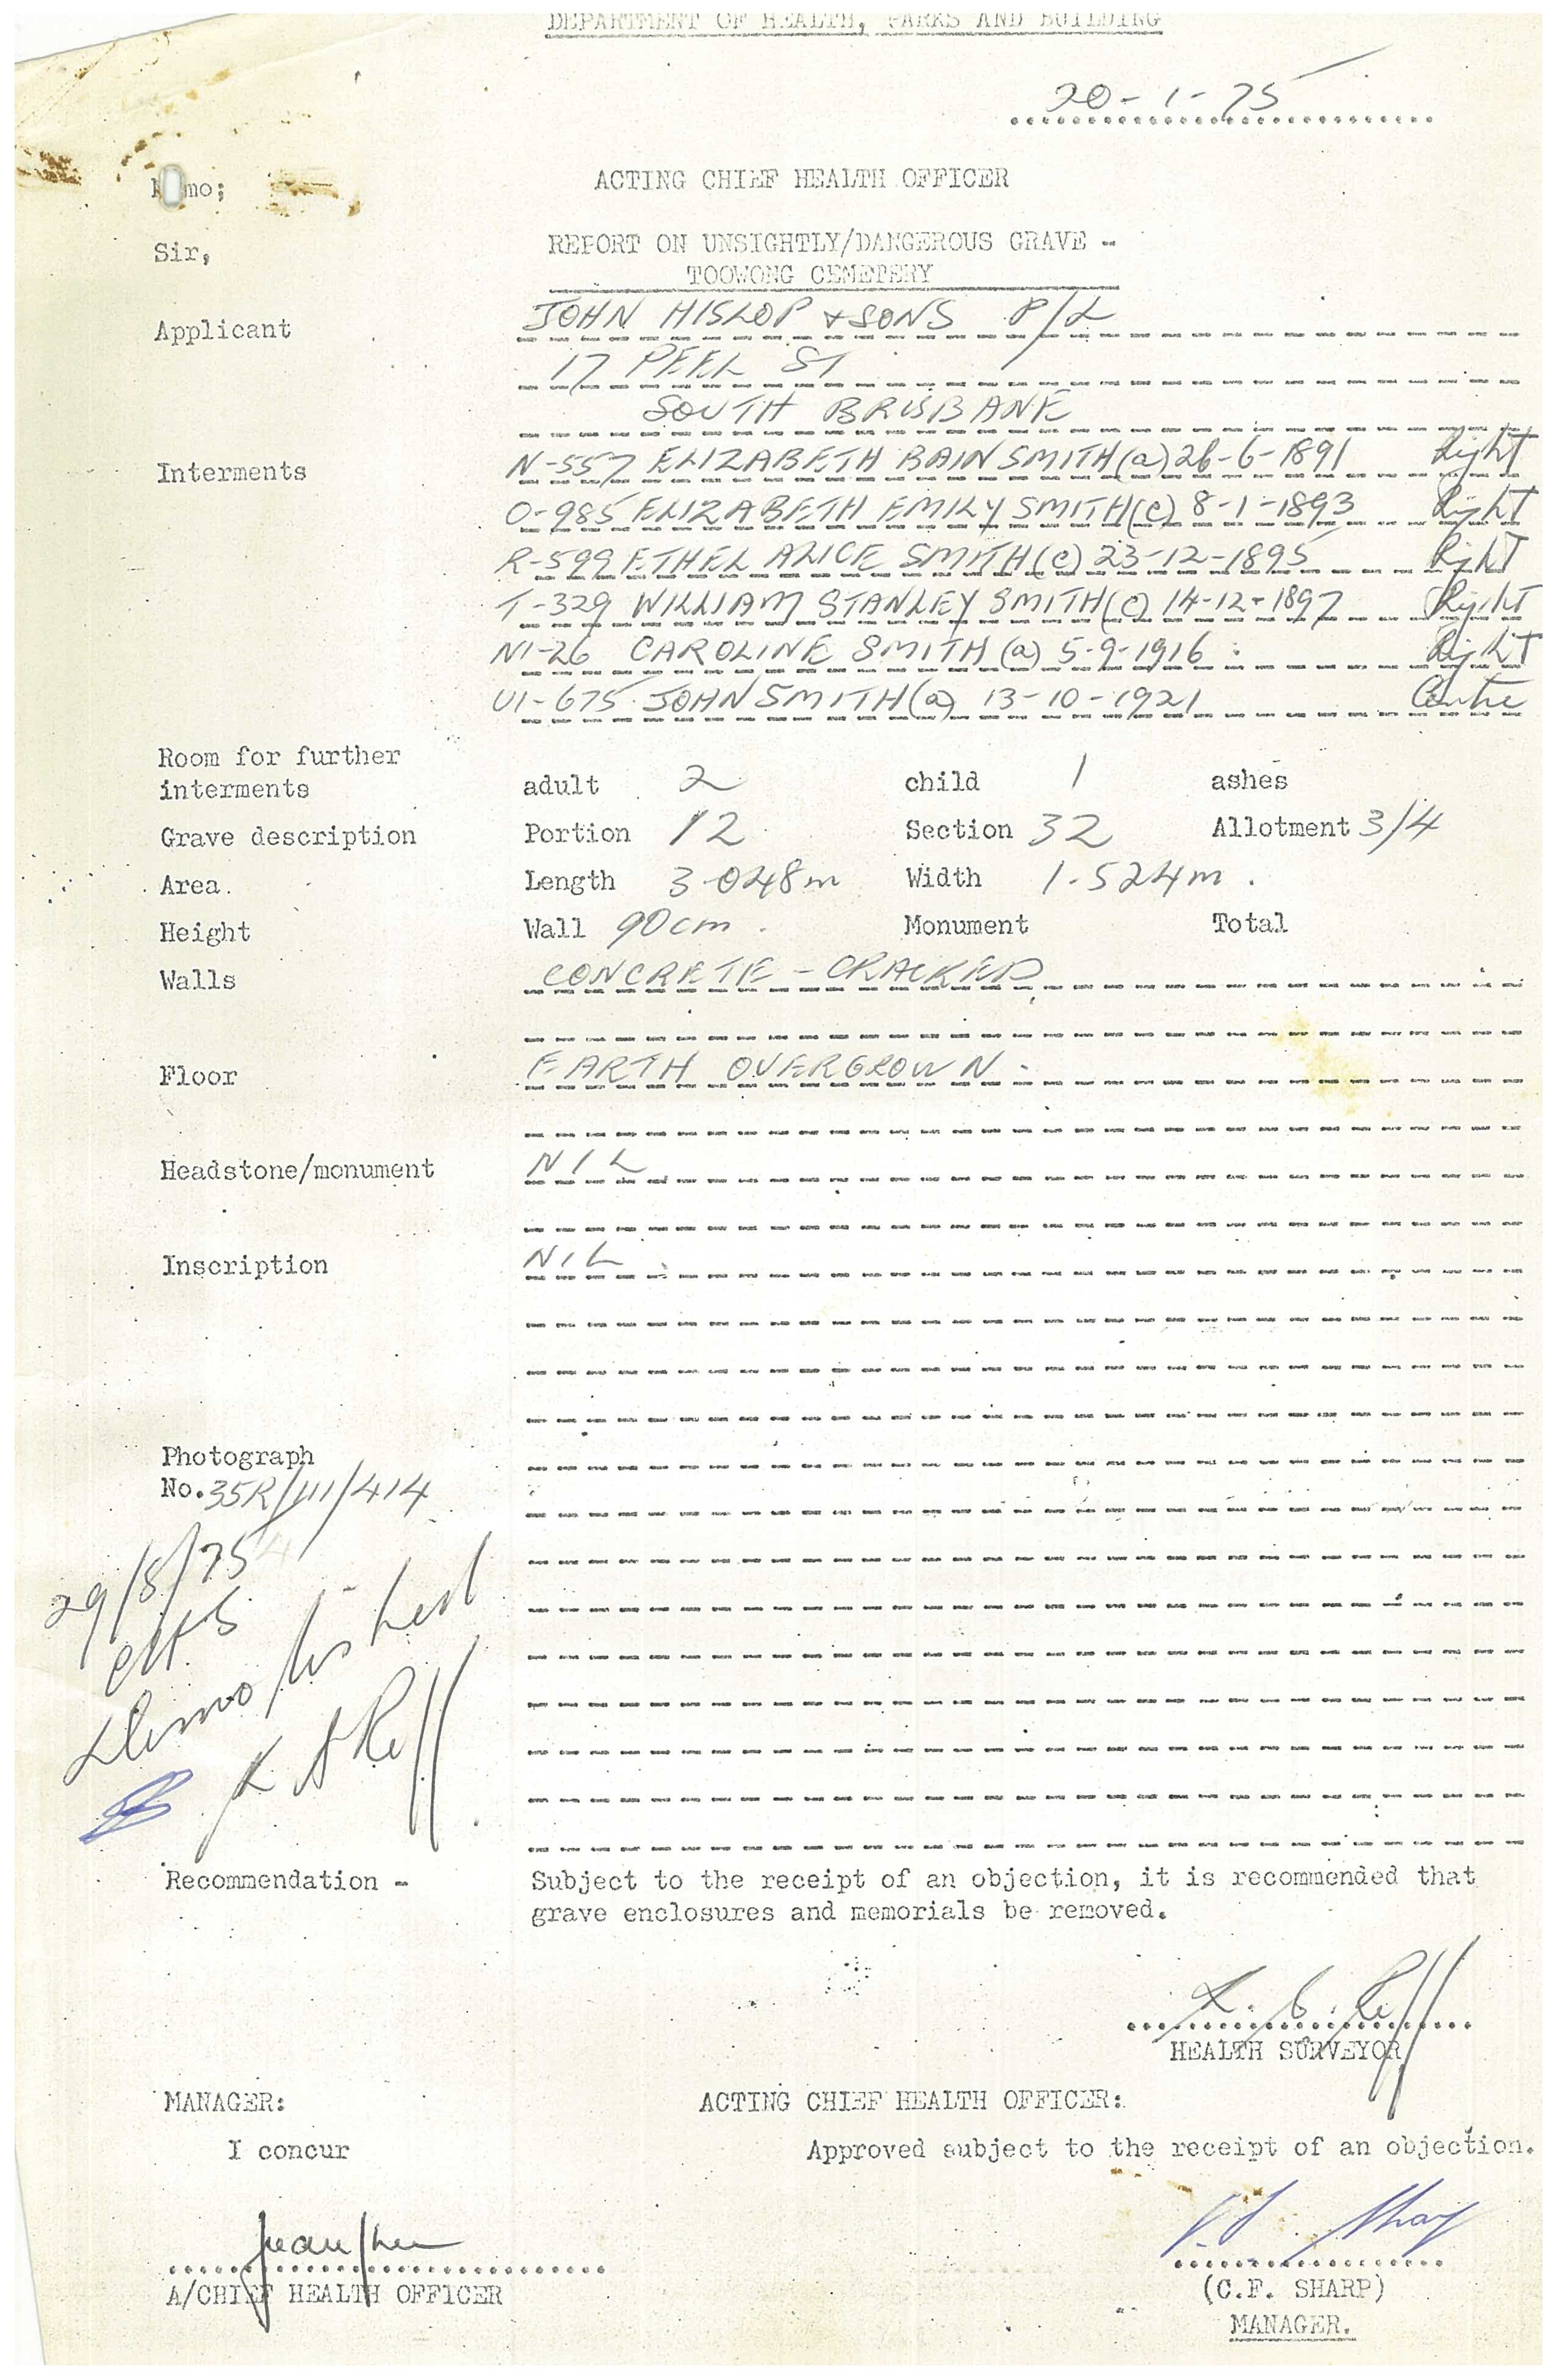 DEPARTMENT OF HEALTH, PARKS AND BUILDING
20-1-75
mo;
ACTING CHIEF HEALTH OFFICER
Sir,
REPORT ON UNSIGHTLY/DANGEROUS GRAVE -
TOOWONG CEMETERY
Applicant JOHN HISLOP & SONS P/L
17 PEEL ST
SOUTH BRISBANE
Interments N-557 ELIZABETH BAIN SMITH (a) 26-6-1891 Right
O-985 ELIZABETH EMILY SMITH (c) 8-1-1893 Right
R-599 ETHEL ALICE SMITH (c) 23-12-1895 Right
T-329 WILLIAM STANLEY SMITH (c) 14-12-1897 Right
N1-26 CAROLINE SMITH (a) 5-9-1916 Right
U1-675 JOHN SMITH (a) 13-10-1921 Centre
Room for further
interments adult 2 child 1 ashes
Grave description Portion 12 Section 32 Allotment 3/4
Area. Length 3.048m Width 1.524m.
Height Wall 90cm. Monument Total
Walls CONCRETE - CRACKED
Floor EARTH OVERGROWN.
Headstone/monument NIL
Inscription NIL.
Photograph
No. 35R/111/414
29/8/75
Demolished
Recommendation - Subject to the receipt of an objection, it is recommended that
grave enclosures and memorials be removed.
HEALTH SURVEYOR
MANAGER: ACTING CHIEF HEALTH OFFICER:
I concur Approved subject to the receipt of an objection.
A/CHIEF HEALTH OFFICER (C.F. SHARP)
MANAGER.